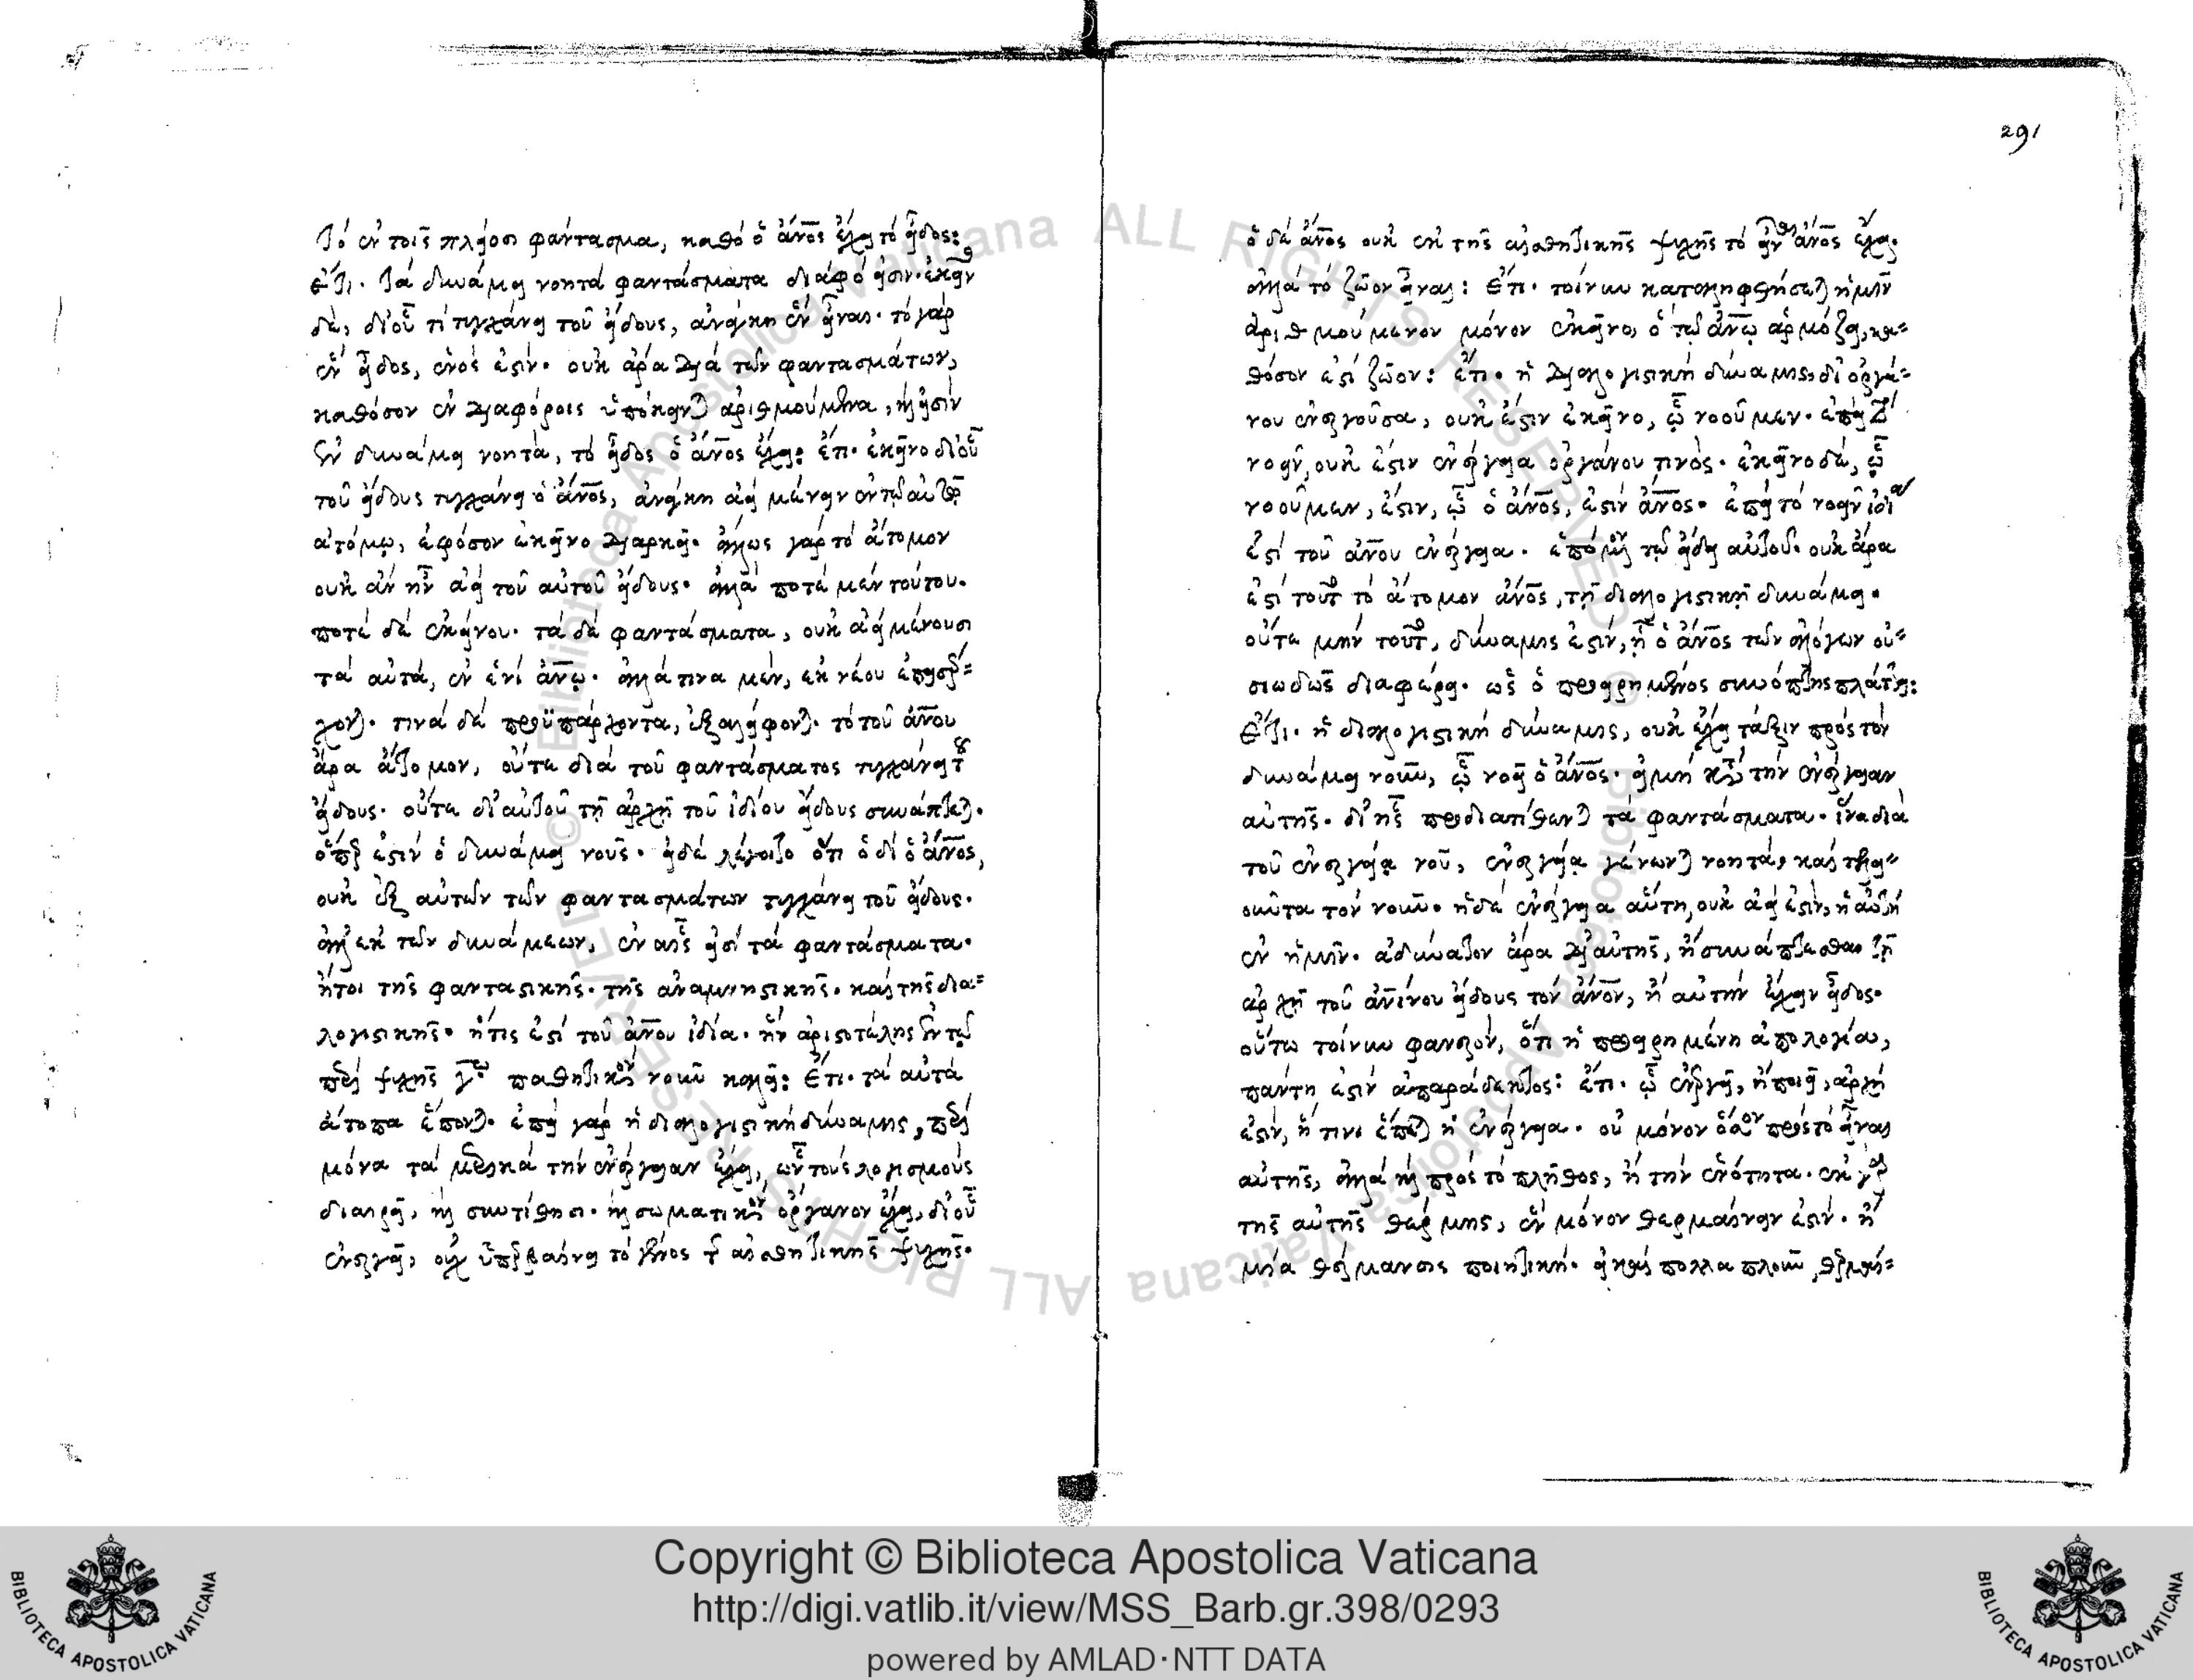 Τὸ ἐν τοῖς πλείοσι φαντασμα, καθὸ ὁ ἄνος ἔχει τὸ εἶδος:
ἔτι. Τὰ δυνάμει νοητὰ φαντάσματα διάφο εἰσιν. ἐκεῖν
δὲ, δι' οὗ τί τυγχάνει τοῦ εἴδους, ἀνάγκη ἓν εἶναι. τὸ γὰρ
ἓν εἶδος, ἑνός ἐστιν. οὐκ ἄρα διὰ τῶν φαντασμάτων,
καθόσον ἐν διαφόροις ὑπόκεινται ἀριθμούμενα, ἢ εἰσὶν
ἐν δυνάμει νοητὰ, τὸ εἶδος ὁ ἄνος ἔχει: ἔτι. ἐκεῖνο δι' οὗ
τοῦ εἴδους τυγχάνει ὁ ἄνος, ἀνάγκη ἀεὶ μένειν ἐν τῷ αὐτῷ
ἀτόμῳ, ἐφόσον ἐκεῖνο διαρκεῖ. ἄλλως γὰρ τὸ ἄτομον
οὐκ ἂν ἦν ἀεὶ τοῦ αὐτοῦ εἴδους. ἀλλὰ ποτὲ μὲν τούτου.
ποτὲ δὲ ἐκείνου. τὰ δὲ φαντάσματα, οὐκ ἀεὶ μένουσι
τὰ αὐτὰ, ἐν ἑνὶ ἄνῳ. ἀλλά τινα μὲν, ἐκ νέου ἐπεισέρ=
χονται. τινὰ δὲ προϋπάρχοντα, ἐξαλείφονται. τὸ τοῦ ἄνου
ἄρα ἄτομον, οὔτε διὰ τοῦ φαντάσματος τυγχάνει τοῦ
εἴδους. οὔτε δι' αὐτοῦ τῇ ἀρχῇ τοῦ ἰδίου εἴδους συνάπτεται.
ὅπερ ἐστὶν ὁ δυνάμει νοῦς. εἰ δὲ λέγοιτο ὅτι ὁδὶ ὁ ἄνος,
οὐκ ἐξ αὐτῶν τῶν φαντασμάτων τυγχάνει τοῦ εἴδους.
ἀλλ' ἐκ τῶν δυνάμεων, ἐν αἷς εἰσὶ τὰ φαντάσματα.
ἤτοι τῆς φανταστικῆς. τῆς ἀναμνηστικῆς. καὶ τῆς δια=
λογιστικῆς. ἥτις ἐστὶ τοῦ ἄνου ἰδία. ἣν ἀριστοτέλης ἐν τῷ
περὶ ψυχῆς παθητικὸν νοῦν καλεῖ: ἔτι. τὰ αὐτὰ
ἄτοπα ἕπονται. ἐπεὶ γὰρ ἡ διαλογιστικὴ δύναμις, περὶ
μόνα τὰ μερικὰ τὴν ἐνέργειαν ἔχει, ὧν τοὺς λογισμοὺς
διαιρεῖ, καὶ συντίθησι. καὶ σωματικὸν ὄργανον ἔχει, δι' οὗ
ἐνεργεῖ, οὐχ ὑπερβαίνει τὸ γένος τῆς αἰσθητικῆς ψυχῆς.
291
ὁ δὲ ἄνος οὐκ ἐκ τῆς αἰσθητικῆς ψυχῆς τὸ εἶν ἄνος ἔχει.
ἀλλὰ τὸ ζῶον εἶναι: ἔτι. τοίνυν καταλειφθήσεται ἡμῖν
ἀριθμούμενον μόνον ἐκεῖνο, ὃ τῷ ἄνῳ ἁρμόζει, κα=
θόσον ἐστὶ ζῶον: ἔτι. ἡ διαλογιστικὴ δύναμις, δι' ὀργά=
νου ἐνεργοῦσα, οὐκ ἔστιν ἐκεῖνο, ᾧ νοοῦμεν. ἐπεὶ τὸ
νοεῖν, οὐκ ἔστιν ἐνέργεια ὀργάνου τινός. ἐκεῖνο δὲ, ᾧ
νοοῦμεν, ἔστιν, ᾧ ὁ ἄνος, ἐστὶν ἄνος. ἐπεὶ τὸ νοεῖν ἰδία
ἐστὶ τοῦ ἄνου ἐνέργεια. ἑπομένη τῷ εἴδει αὐτοῦ. οὐκ ἄρα
ἐστὶ τοῦτο τὸ ἄτομον ἄνος, τῇ διαλογιστικῇ δυνάμει.
οὔτε μὴν τοῦτο, δύναμις ἐστὶν, ᾗ ὁ ἄνος τῶν ἀλόγων οὐ=
σιωδῶς διαφέρει. ὡς ὁ προειρημένος συνόπτης πλάττει:
ἔτι. ἡ διαλογιστικὴ δύναμις, οὐκ ἔχει τάξιν πρὸς τὸν
δυνάμει νοῦν, ᾧ νοεῖ ὁ ἄνος. εἰ μὴ κατὰ τὴν ἐνέργειαν
αὐτῆς. δι' ἧς προδιατίθενται τὰ φαντάσματα. ἵνα διὰ
τοῦ ἐνεργείᾳ νοῦ, ἐνεργείᾳ γένωνται νοητὰ, καὶ τελει=
οῦντα τὸν νοῦν. ἡ δὲ ἐνέργεια αὕτη, οὐκ ἀεί ἐστιν, ἡ αὐτὴ
ἐν ἡμῖν. ἀδύνατον ἄρα δι' αὐτῆς, ἢ συνάπτεσθαι τῇ
ἀρχῇ τοῦ ἀνίνου εἴδους τὸν ἄνον, ἢ αὐτὴν ἔχειν εἶδος.
οὕτω τοίνυν φανερὸν, ὅτι ἡ προειρημένη ἀπολογία,
πάντη ἐστὶν ἀπαράδεκτος: ἔτι. ᾧ ἐνεργεῖ, ἢ ποιεῖ, ἀρχή
ἐστιν, ᾗ τινι ἕπεται ἡ ἐνέργεια. οὐ μόνον ὅσον πρὸς τὸ εἶναι
αὐτῆς, ἀλλὰ καὶ πρὸς τὸ πλῆθος, ἢ τὴν ἑνότητα. ἐκ γὰρ
τῆς αὐτῆς θέρμης, ἓν μόνον θερμαίνειν ἐστίν. ἢ
μία θέρμανσις ποιητική. εἰ καὶ πολλα πλοῦν, θερμαί=
Copyright © Biblioteca Apostolica Vaticana
http://digi.vatlib.it/view/MSS_Barb.gr.398/0293
powered by AMLAD·NTT DATA
BIBLIOTECA APOSTOLICA VATICANA
BIBLIOTECA APOSTOLICA VATICANA